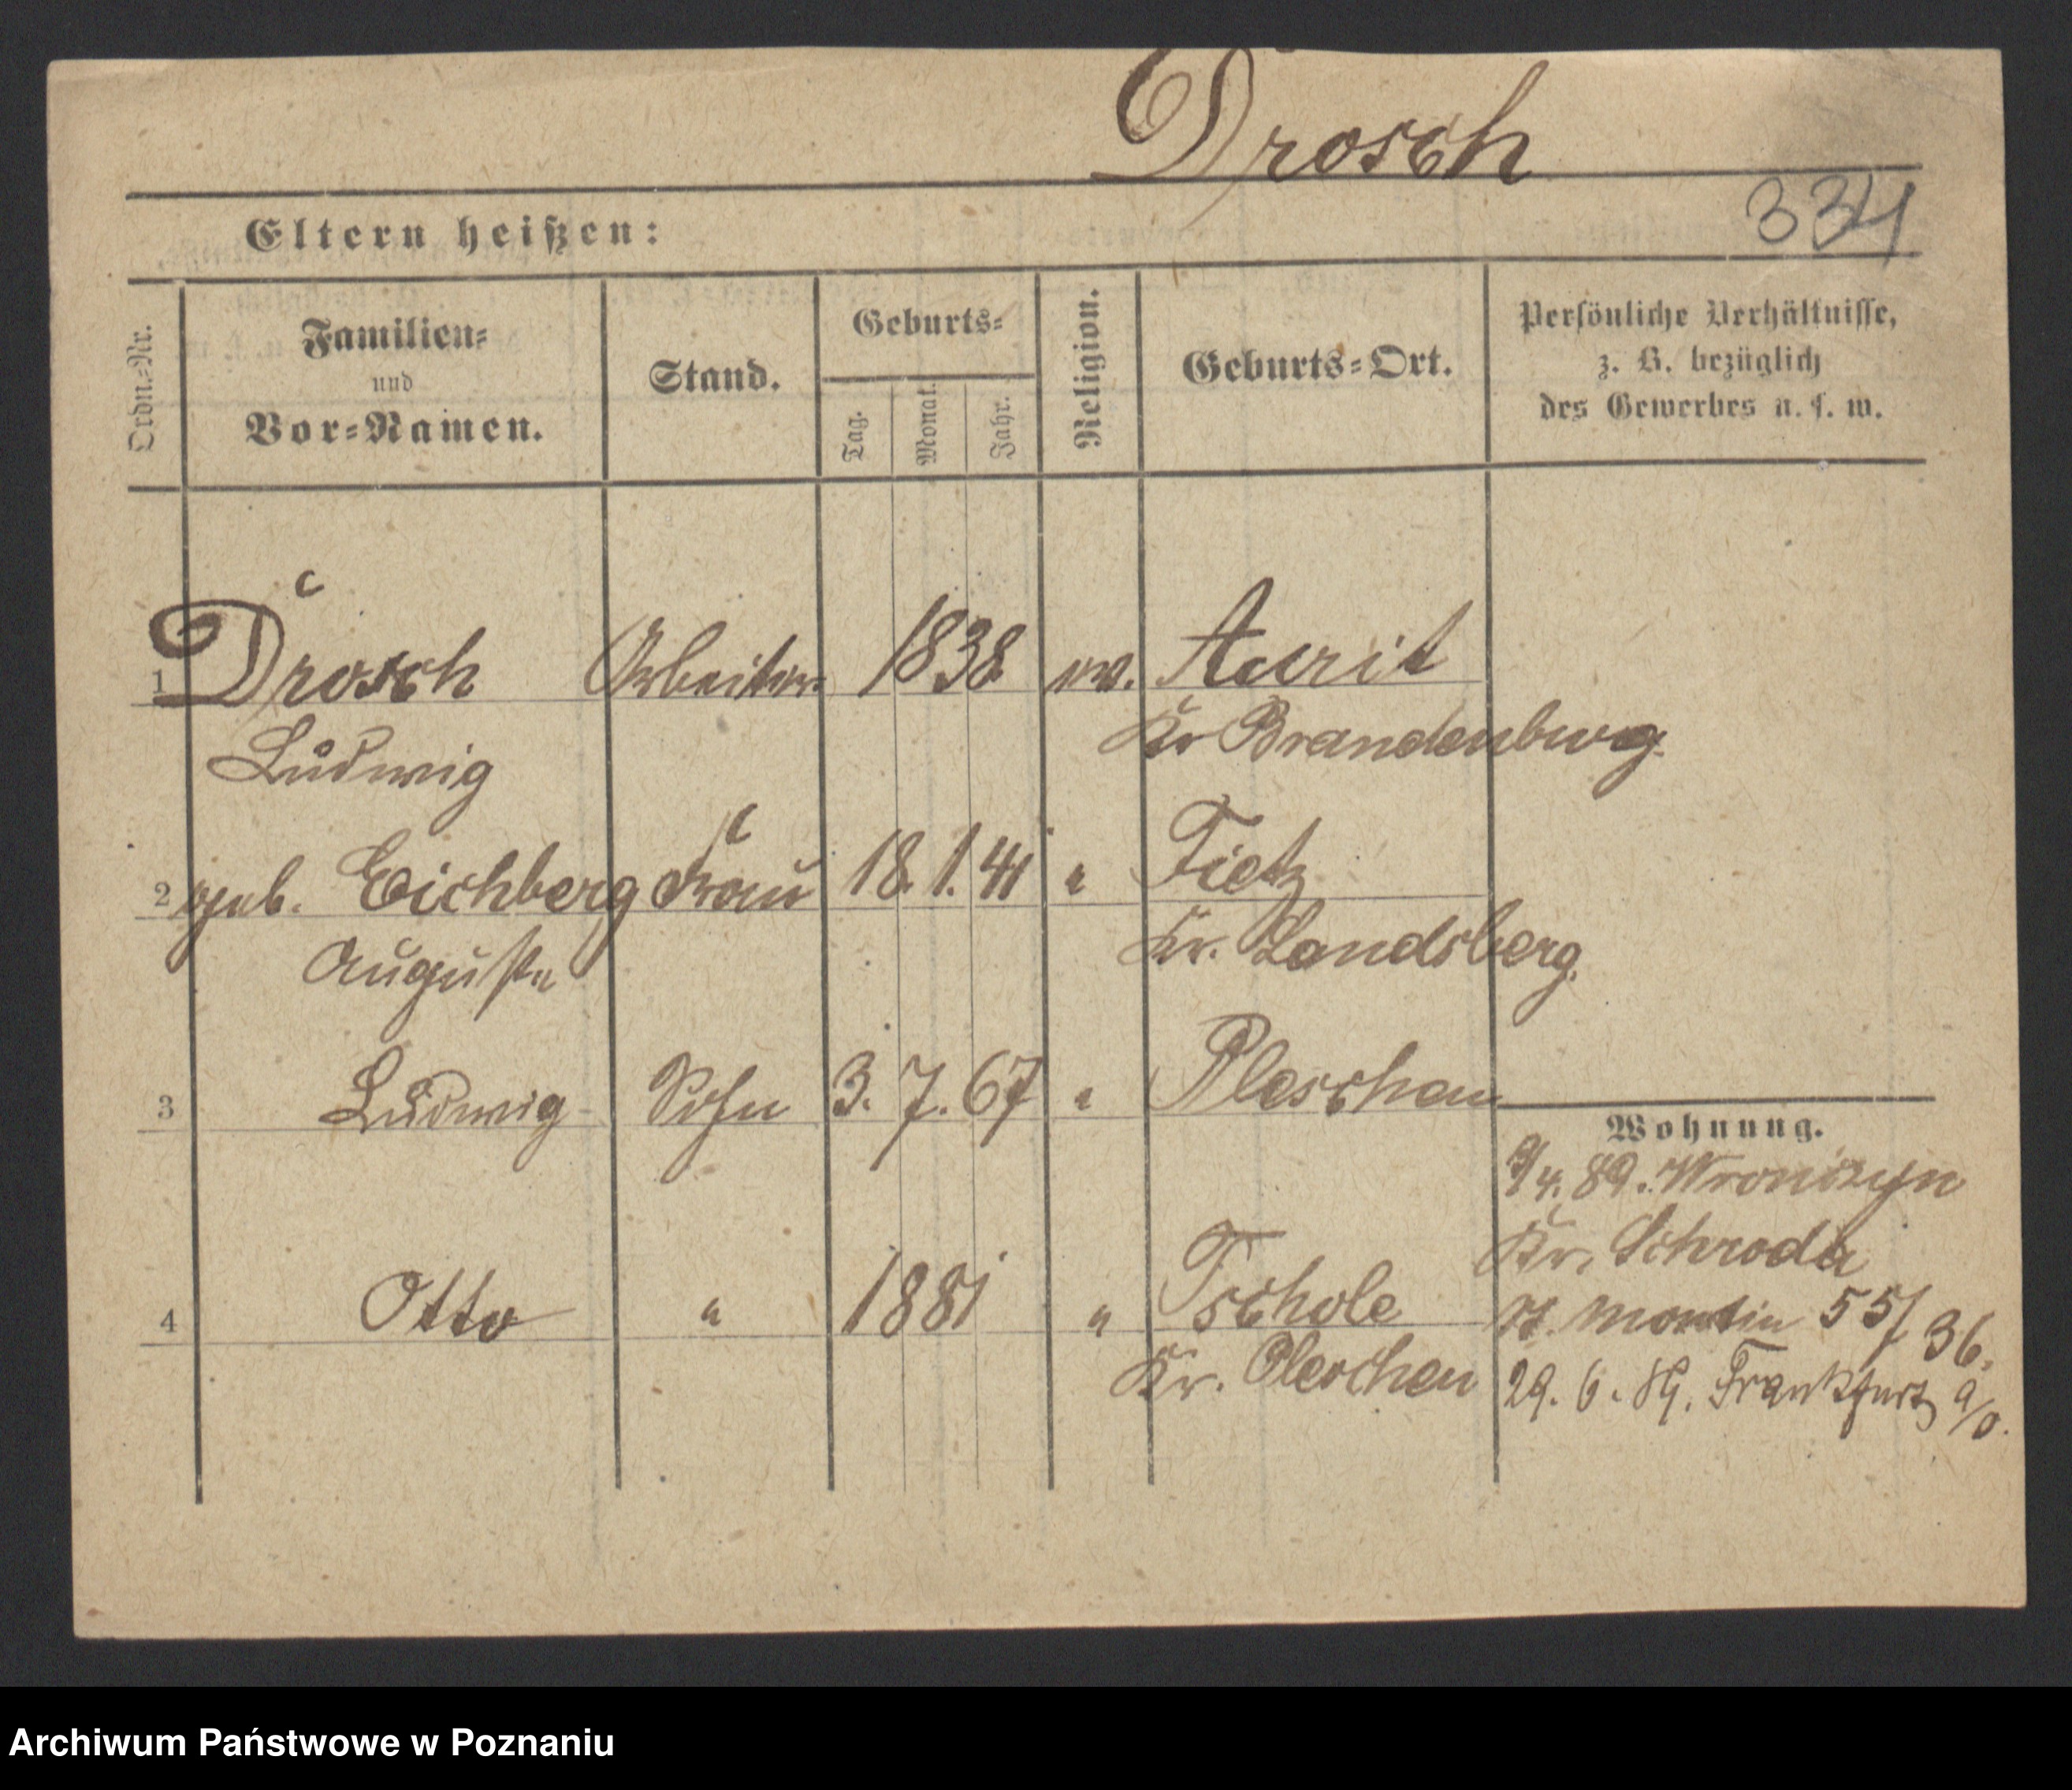 Drosch
334
Eltern heißen:
Ordn.=Nr.
Familien=
und
Vor=Namen.
Stand.
Geburts=
Tag.
Monat.
Jahr.
Religion.
Geburts=Ort.
Persönliche Verhältnisse,
z. B. bezüglich
des Gewerbes u. s. w.
1 Drosch Arbeiter 1838 ev. Aurit
Ludwig Kr Brandenburg
2 geb. Eichberg Frau 18. 1. 41 " Tietz
Auguste Kr. Landsberg.
3 Ludwig Sohn 3. 7. 67 " Pleschen
Wohnung.
/4. 89. Wronczyn
Kr. Schroda
4 Otto " 1881 " Tschole
St. Martin 55/36.
Kr. Pleschen
29. 6. 89. Frankfurt a/O.
Archiwum Państwowe w Poznaniu